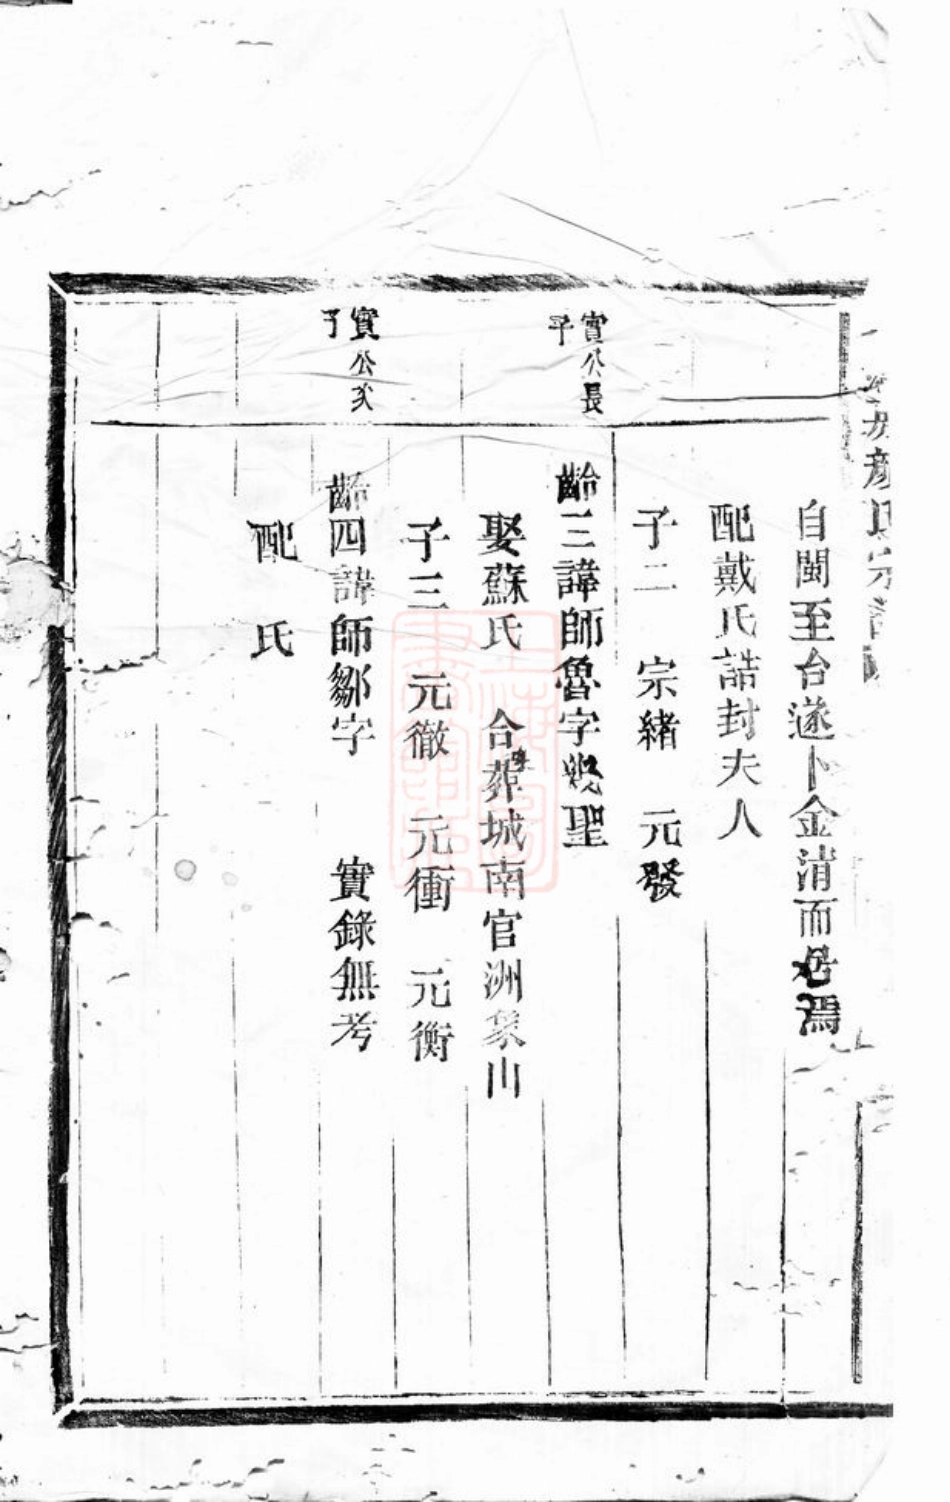 顏氏宗譜
自閩至台遂卜金清而居焉
配戴氏誥封夫人
子二 宗緒 元發
實公長子
齡三諱師魯字悅聖
娶蘇氏 合葬城南官洲象山
子三 元徹 元衝 元衡
實公次子
齡四諱師鄒字 實錄無考
配 氏